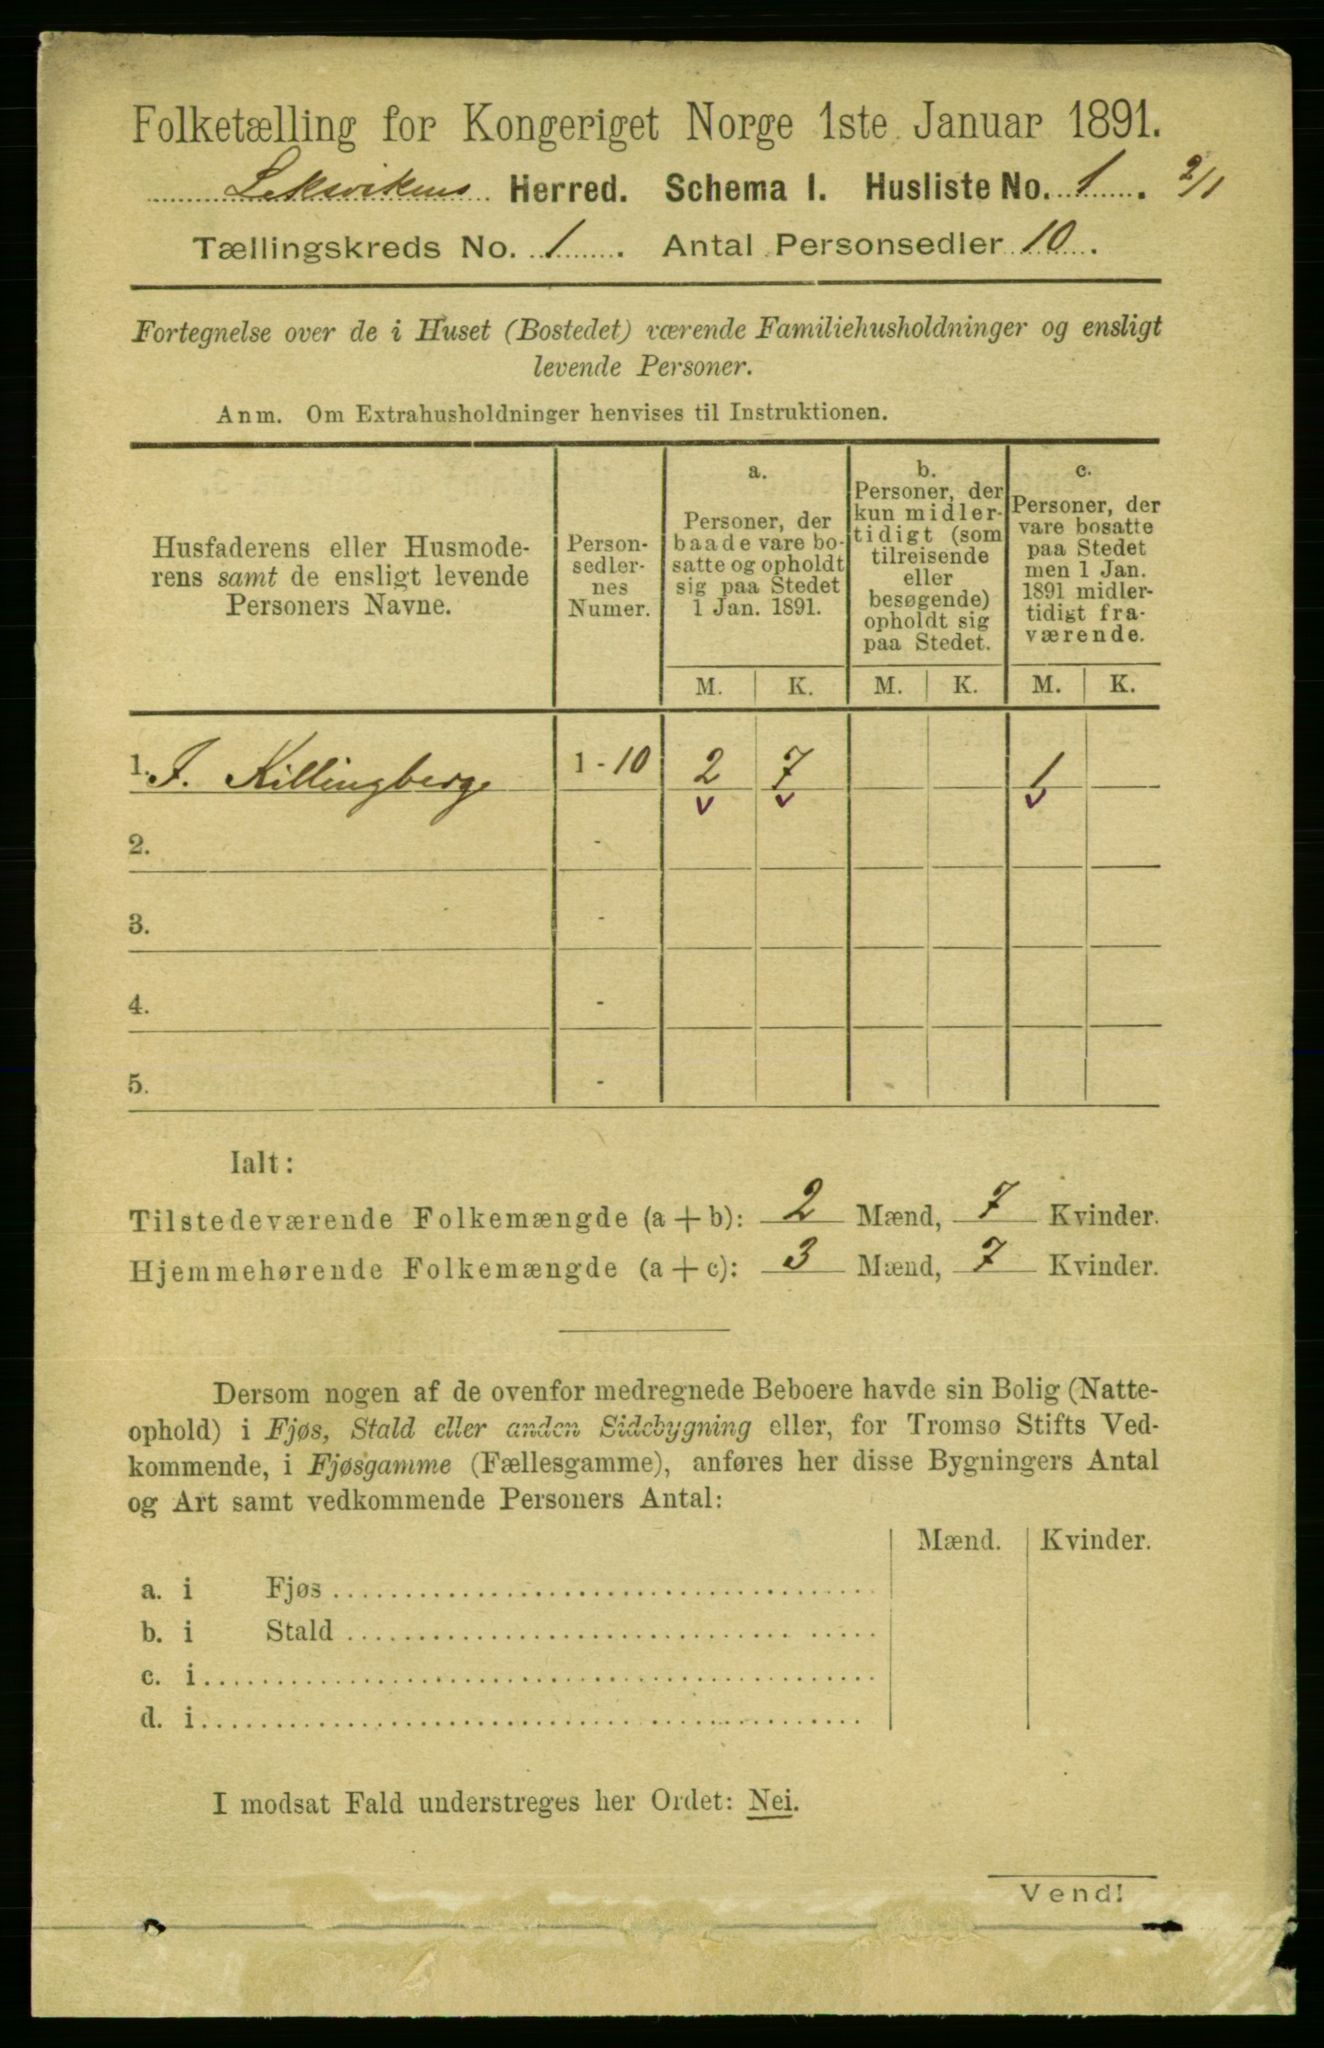 Folketælling for Kongeriget Norge 1ste Januar 1891.
Leksvikens Herred. Schema I. Husliste No. 1. 2/1
Tællingskreds No. 1. Antal Personsedler 10.
Fortegnelse over de i Huset (Bostedet) værende Familiehusholdninger og ensligt
levende Personer.
Anm. Om Extrahusholdninger henvises til Instruktionen.
Husfaderens eller Husmode-
rens samt de ensligt levende
Personers Navne.
Person-
sedler-
nes
Numer.
a.
Personer, der
baade vare bo-
satte og opholdt
sig paa Stedet
1 Jan. 1891.
b.
Personer, der
kun midler-
tidigt (som
tilreisende
eller
besøgende)
opholdt sig
paa Stedet.
c.
Personer, der
vare bosatte
paa Stedet
men 1 Jan.
1891 midler-
tidigt fra-
værende.
M. K. M. K. M. K.
1. J. Killingberg 1 - 10 2 7 1
2. -
3. -
4. -
5. -
Ialt:
Tilstedeværende Folkemængde (a + b): 2 Mænd, 7 Kvinder.
Hjemmehørende Folkemængde (a + c): 3 Mænd, 7 Kvinder.
Dersom nogen af de ovenfor medregnede Beboere havde sin Bolig (Natte-
ophold) i Fjøs, Stald eller anden Sidebygning eller, for Tromsø Stifts Ved-
kommende, i Fjøsgamme (Fællesgamme), anføres her disse Bygningers Antal
og Art samt vedkommende Personers Antal:
Mænd. Kvinder.
a. i Fjøs
b. i Stald
c. i
d. i
I modsat Fald understreges her Ordet: Nei.
Vend!